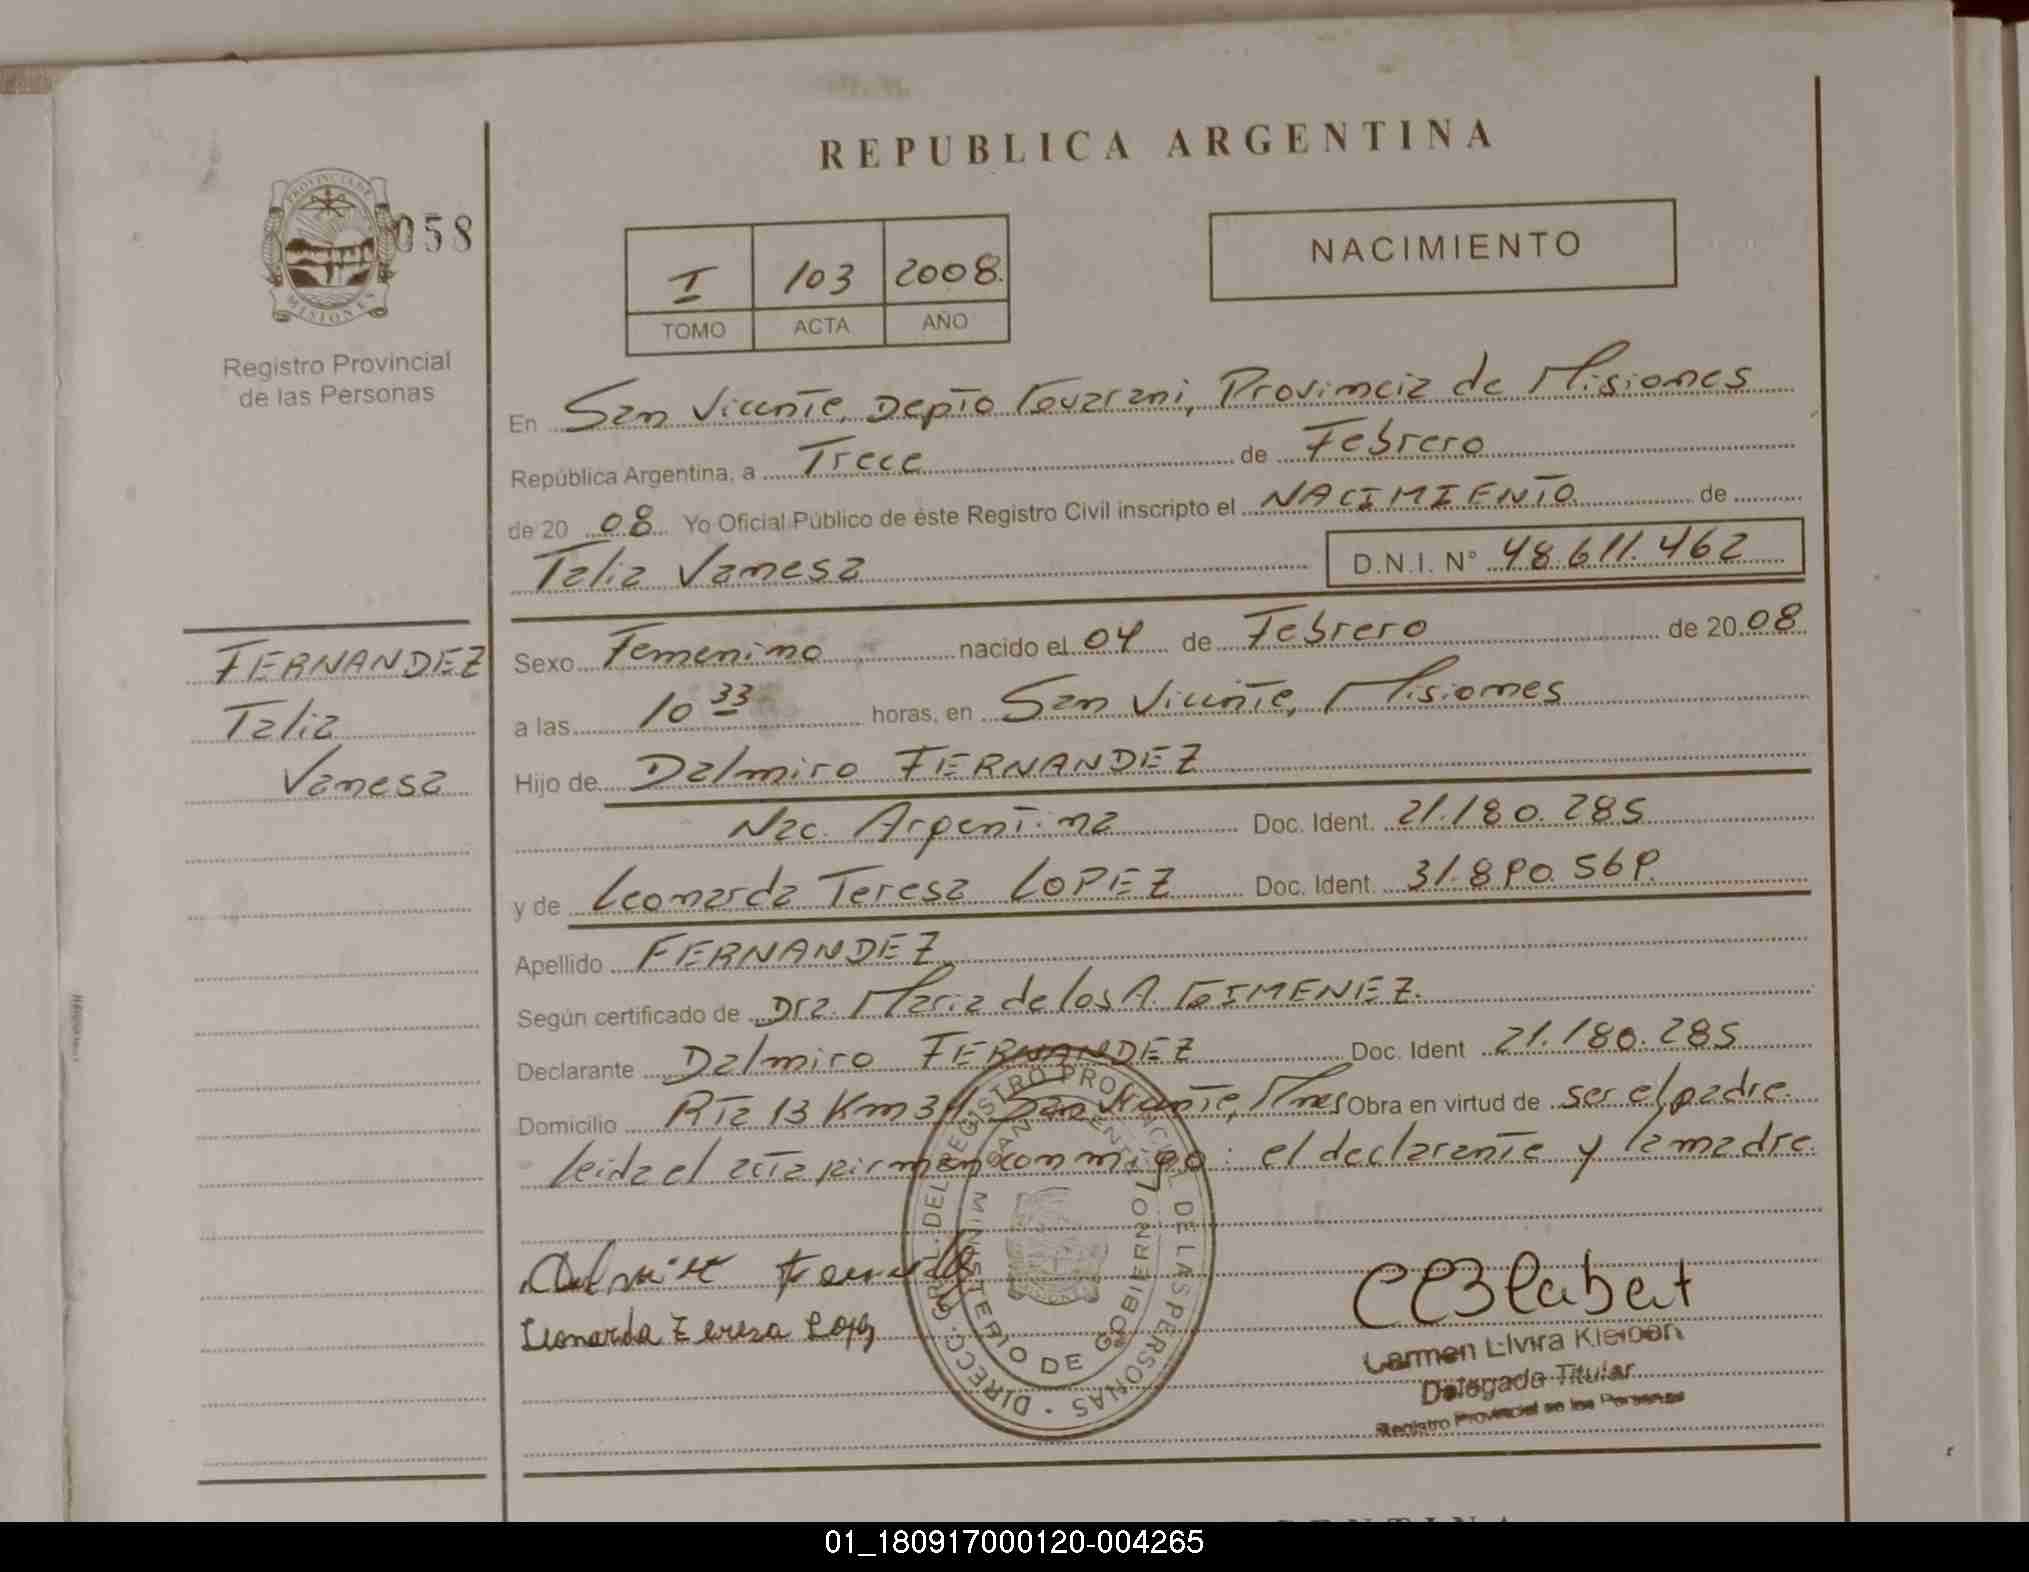 REPUBLICA ARGENTINA
PROVINCIA DE
MISIONES
058
Registro Provincial
de las Personas
I 103 2008.
TOMO ACTA AÑO
NACIMIENTO
En San Vicente, Depto Guarani, Provincia de Misiones
República Argentina, a Trece de Febrero
de 20 08 Yo Oficial Público de éste Registro Civil inscripto el NACIMIENTO de
Talia Vanesa D.N.I. N° 48.611.462
FERNANDEZ
Talia
Vanesa
Sexo Femenino nacido el 04 de Febrero de 20 08
a las 10 33 horas, en San Vicente, Misiones
Hijo de Dalmiro FERNANDEZ
Nac. Argentina Doc. Ident. 21.180.285
y de Leonarda Teresa LOPEZ Doc. Ident. 31.890.569.
Apellido FERNANDEZ
Según certificado de Dra. Maria de los A. GIMENEZ.
Declarante Dalmiro FERNANDEZ Doc. Ident 21.180.285
Domicilio Rta 13 Km 34 San Vicente, Mnes Obra en virtud de ser el padre.
leida el acta firman conmigo: el declarante y la madre.
DIRECC. GRL. DEL REGISTRO PROVINCIAL DE LAS PERSONAS
MINISTERIO DE GOBIERNO
SAN VICENTE
Leonarda Teresa Lopez
Carmen Elvira
Delegada Titular
Registro Provincial de las Personas
01_180917000120-004265